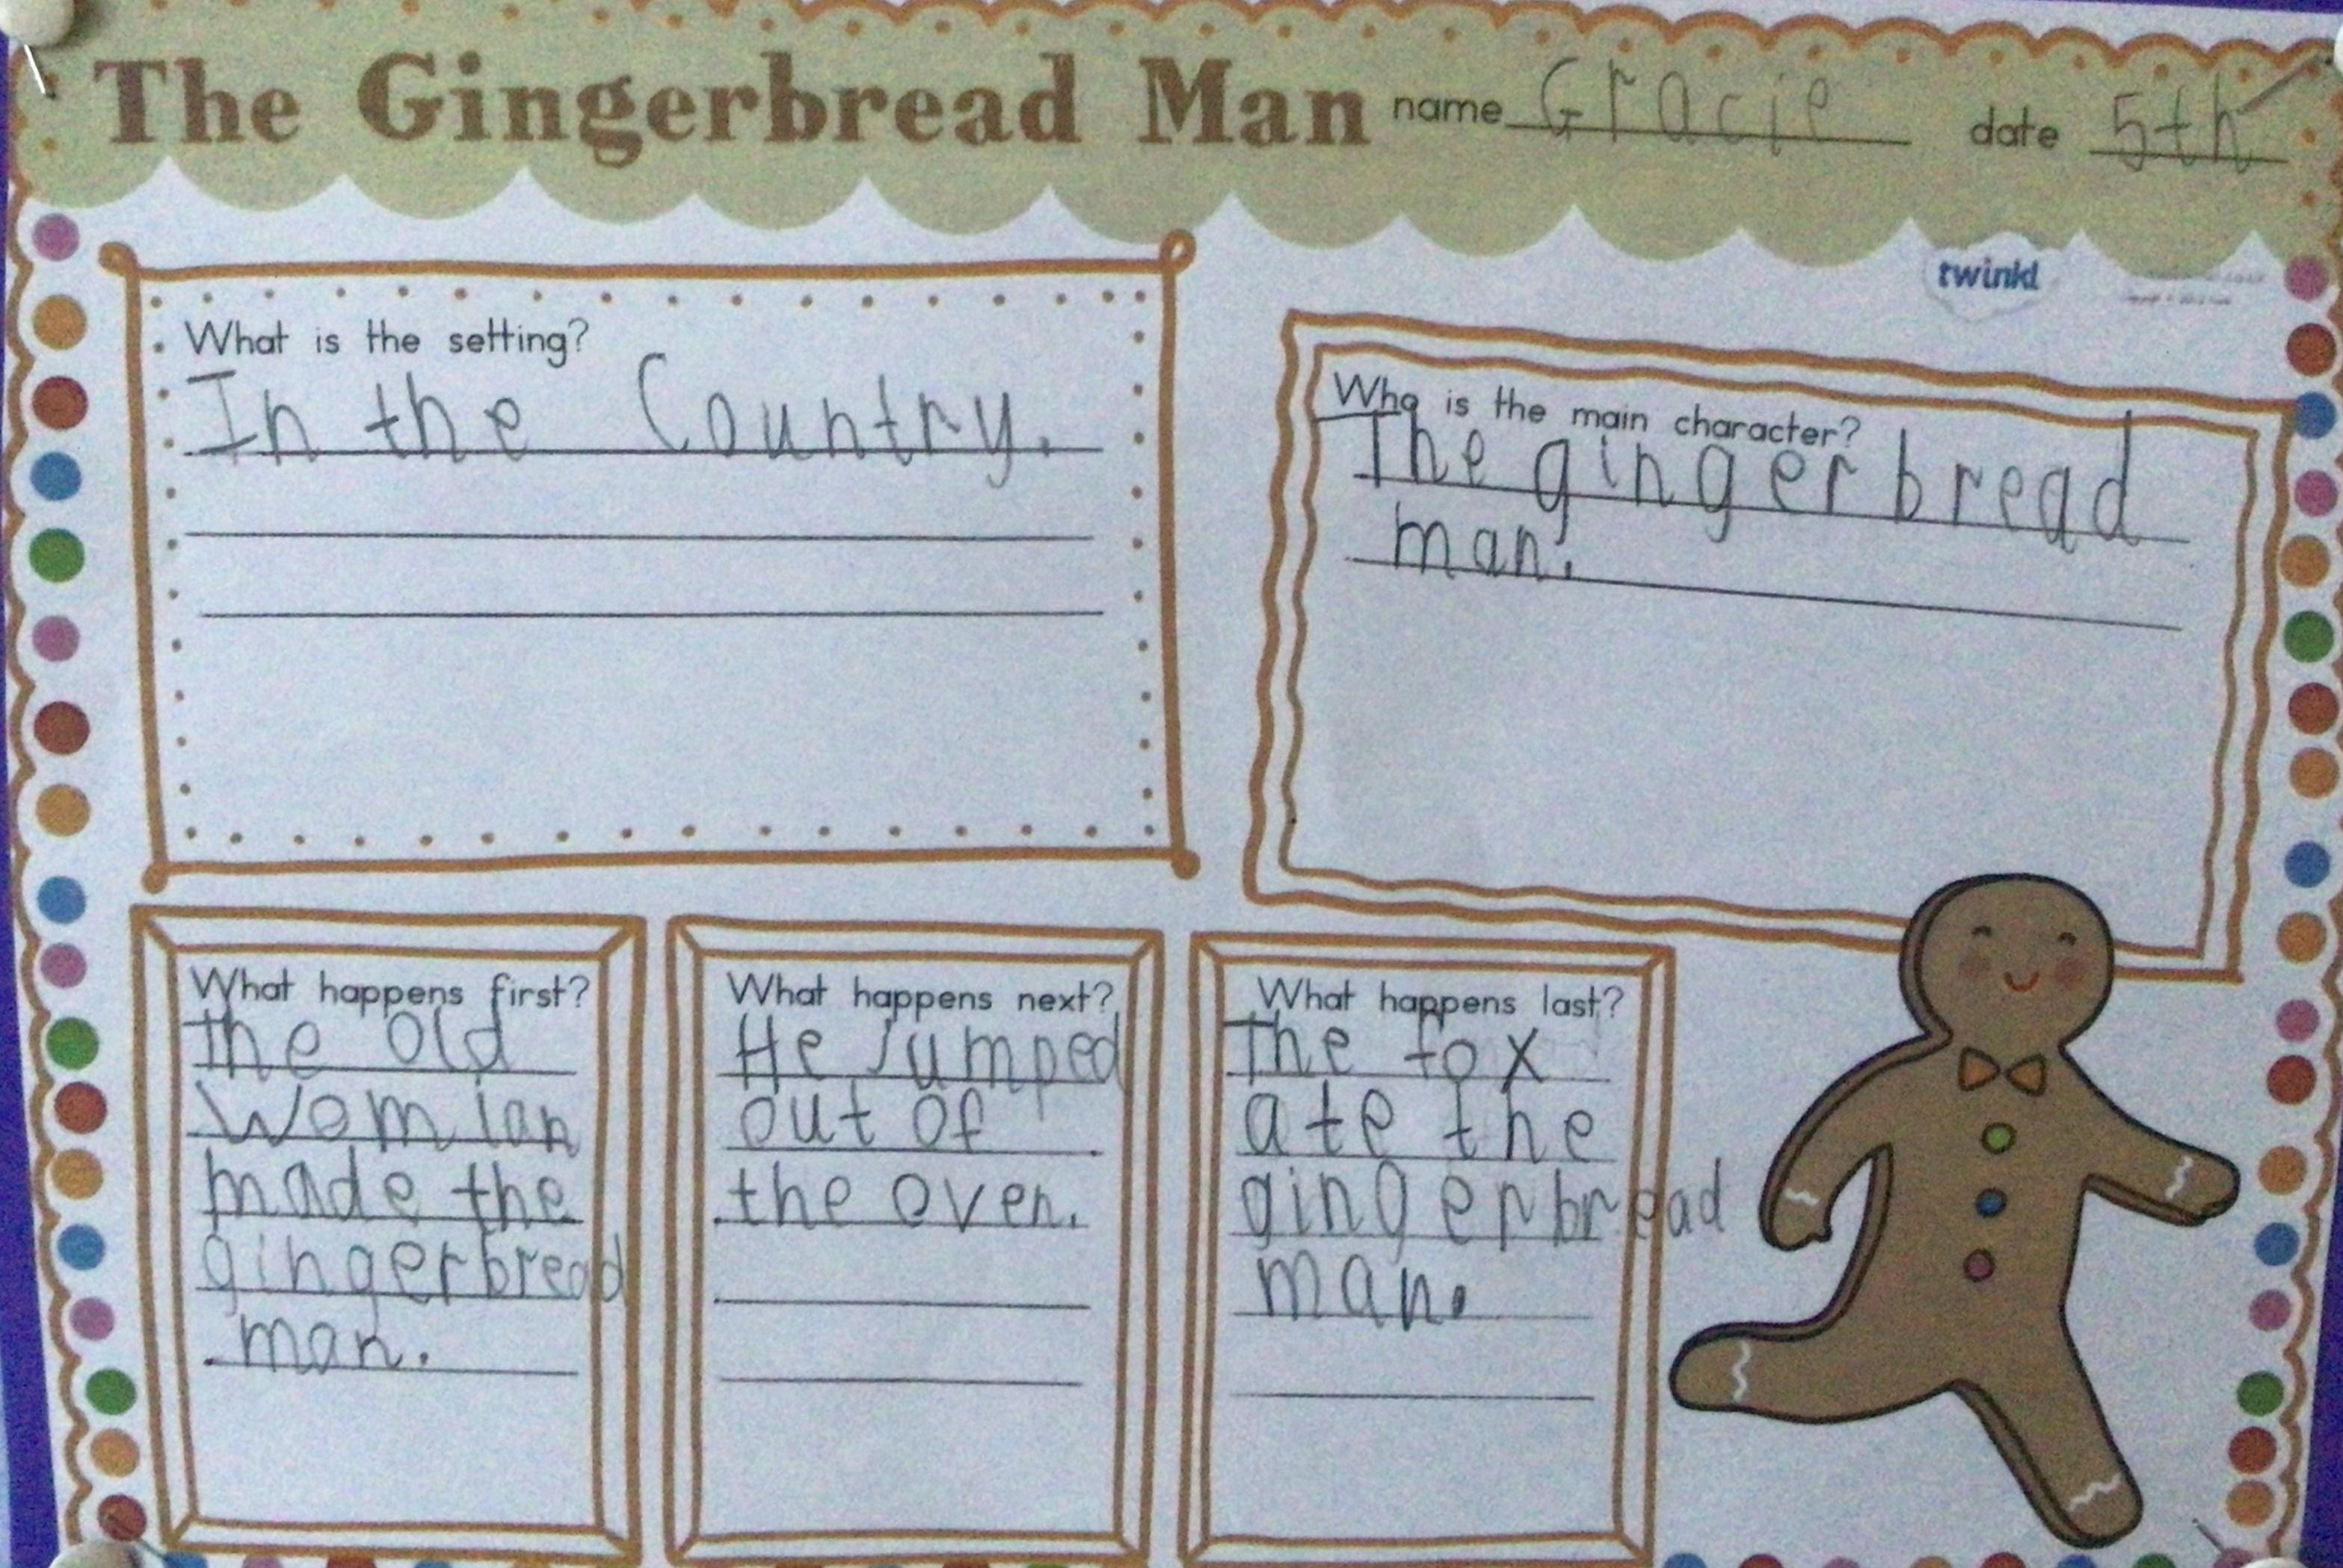 The Gingerbread Man name Gracie date 5th
twinkl
What is the setting?
In the Country.
Who is the main character?
The gingerbread
man.
What happens first?
the old
womian
made the
gingerbread
man.
What happens next?
He Jumped
out of
the oven.
What happens last?
The fox
ate the
gingerbread
man.